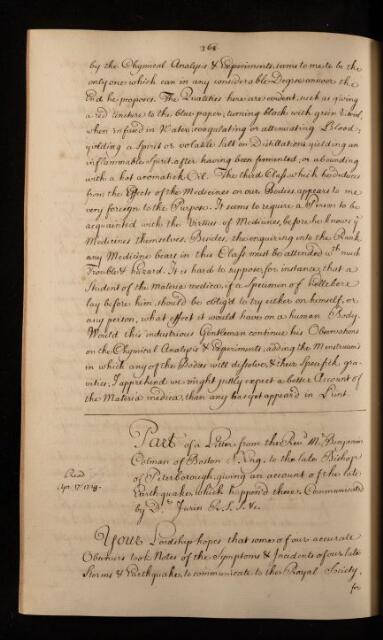 368
by the Chymical Analysis & Experiments, seems to me to be the
only one which can in any considerable Degree answer the
End he proposes. The Qualities here are evident, such as giving
a red tincture to the blue paper, turning black with green Vitriol,
when infused in Water, coagulating or attenuating Blood,
yielding a Spirit or volatile Salt in Distillation, yielding an
inflammable Spirit after having been fermented, or abounding
with a hot aromatick Oil. The third Class which he deduces
from the Effects of the Medicines on our Bodies, appears to me
very foreign to the Purpose. It seems to require a Person to be
acquainted with the Virtues of Medicines, before he knows ye
Medicines themselves. Besides, the enquiring into the Rank
any Medicine bears in this Class must be attended wth much
Trouble & hazard. It is hard to suppose for instance, that a
Student of the Materia medica, if a Specimen of hellebore
lay before him, should be oblig'd to try either on himself, or
any person, what effect it would have on a human Body.
Would this industrious Gentleman continue his Observations
on the Chymical Analysis & Experiments, adding the Menstruum's
in which any of the Bodies will dissolve, & their Specifick gra-
vities, I apprehend we might justly expect a better Account of
the Materia medica, than any has yet appear'd in Print.
Part of a Letter from the Revd Mr Benjamin
Colman of Boston N. Eng. to the late Bishop
of Peterborough, giving an account of the late
Earthquake, which happen'd there. Communicated
by Dr Jurin R. S. S. &c.
Read
Apr. 17. 1729.
Your Lordship hopes that some of our accurate
Observers took Notes of the Symptoms & Incidents of our late
Storms & Earthquake, to communicate to the Royal Society,
for